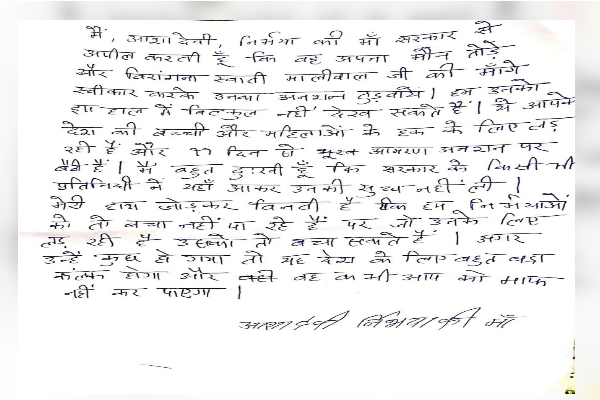 मैं, आशा देवी, निर्भया की माँ सरकार से
अपील करती हूँ कि वह अपना मौन तोड़े
और विरांगना स्वाती मालीवाल जी की माँगे
स्वीकार करके उनका अनशन तुड़वाये। हम उनको
इस हाल में बिल्कुल नहीं देख सकते हैं। वो आपके
देश की बच्ची और महिलाओं के हक के लिए लड़
रही हैं और 11 दिन से भूख आमरण अनशन पर
बैठी हैं। मैं बहुत दुःखी हूँ कि सरकार के किसी भी
प्रतिनिधी ने यहाँ आकर उनकी सुध नहीं ली।
मेरी हाथ जोड़कर विनती है कि हम निर्भयाओं
को तो बचा नहीं पा रहे हैं पर जो उनके लिए
लड़ रही है उसको तो बचा सकते हैं। अगर
उन्हें कुछ हो गया तो यह देश के लिए बहुत बड़ा
कलंक होगा और वह कभी आप को माफ
नहीं कर पाएगा।
आशा देवी निर्भया की माँ